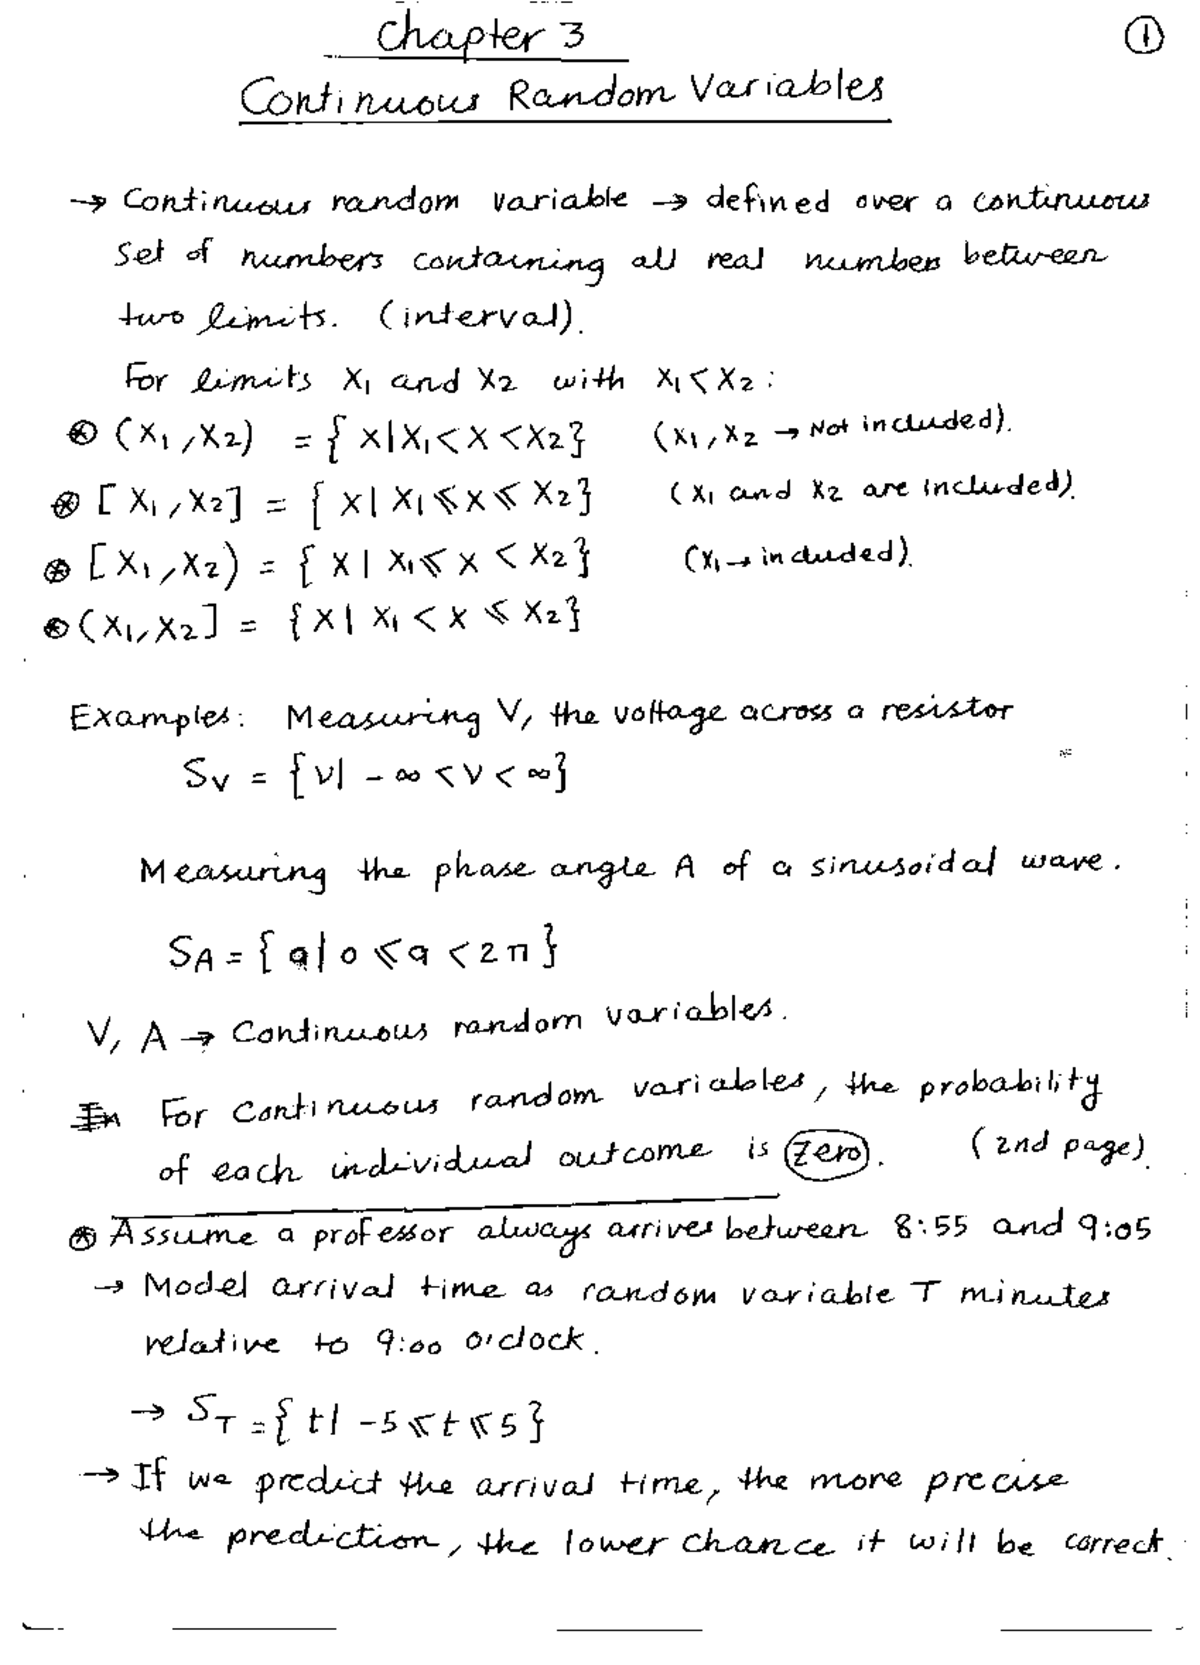 Chapter 3
①
Continuous Random Variables
→ Continuous random variable → defined over a continuous
set of numbers containing all real numbers between
two limits. (interval).
For limits X₁ and X₂ with X₁ < X₂ :
⊛ (X₁, X₂) = { X | X₁ < X < X₂ } (X₁, X₂ → Not included).
⊛ [X₁, X₂] = { X | X₁ ⩽ X ⩽ X₂ } (X₁ and X₂ are included).
⊛ [X₁, X₂) = { X | X₁ ⩽ X < X₂ } (X₁ → included).
⊛ (X₁, X₂] = { X | X₁ < X ⩽ X₂ }
Examples: Measuring V, the voltage across a resistor
S_V = { v | -∞ < v < ∞ }
Measuring the phase angle A of a sinusoidal wave.
S_A = { a | 0 ⩽ a < 2π }
V, A → Continuous random variables.
In For Continuous random variables, the probability
of each individual outcome is zero. (2nd page).
⊛ Assume a professor always arrives between 8:55 and 9:05
→ Model arrival time as random variable T minutes
relative to 9:00 o'clock.
→ S_T = { t | -5 ⩽ t ⩽ 5 }
→ If we predict the arrival time, the more precise
the prediction, the lower chance it will be correct.